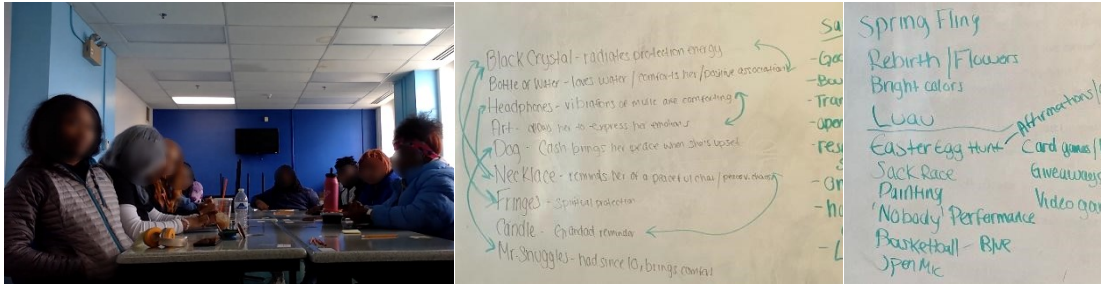 Black Crystal - radiates protection energy
Bottle of Water - loves water / comforts her / positive association
Headphones - vibrations of music are comforting
Art - allows her to express her emotions
Dog - Cash brings her peace when she's upset
Necklace - reminds her of a peaceful
Fringes - spiritual protection
Candle - Grandad reminder
Mr. Snuggles - had since 10, brings comfort
Su
- Goo
- Tran
- open
- res
- or
- ho
- L
Spring Fling
Rebirth / Flowers
Bright colors
Luau
Affirmations/
Easter Egg Hunt
Card games/
Sack Race
Giveaways
Painting
Video gam
'Nobody' Performance
Basketball -
Open Mic